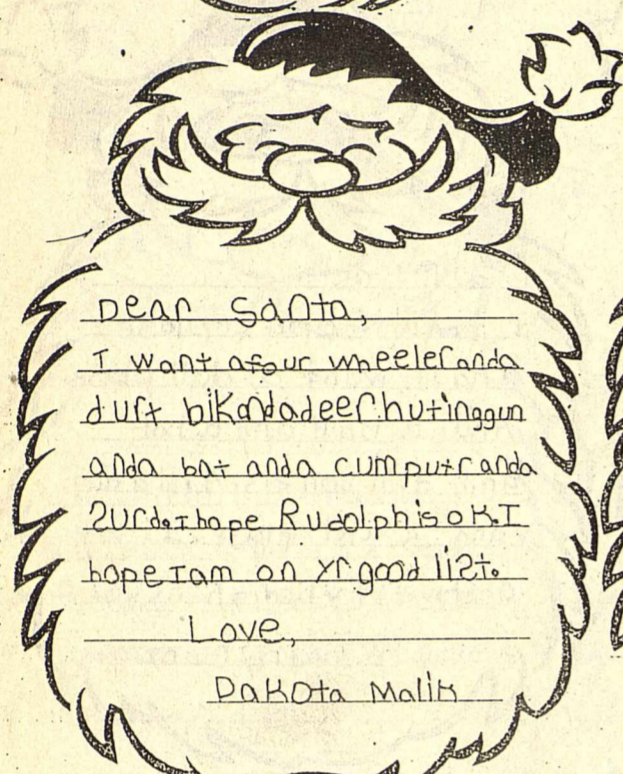 Dear Santa,
I want afour wheeler anda
durt bik andadeer hutinggun
anda bat anda cumputr anda
Surd. I hope Rudolph is ok. I
hope I am on yr good list.
Love,
Dakota Malik